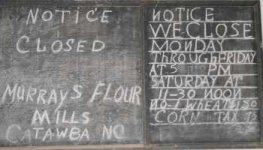 NOTICE
CLOSED
MURRAYS FLOUR
MILLS
CATAWBA NC
NOTICE
WE CLOSE
MONDAY
THROUGH FRIDAY
AT 5 PM
SATURDAY AT
11-30 NOON
NO-1 WHEAT
CORN TAX